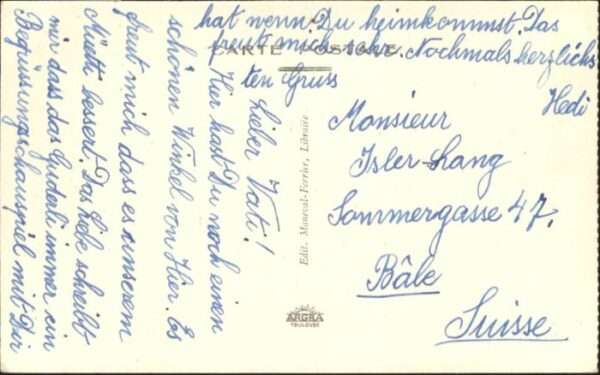 Lieber Vati!
Hier hat Du noch einen
schönen Winkel von Hier. Es
freut mich dass es unserem
Mutti bessert. Das liebe schreibt
mir dass das Guderli immer ein
Begrüssungschauspiel mit Dir
hat wenn Du heimkommst. Das
freut mich sehr. Nochmals herzlichs
ten Gruss
Hedi
CARTE POSTALE
Monsieur
Isler-Lang
Sommergasse 47.
Bâle
Suisse
Edit. Libraire
ARGRA
TOULOUSE